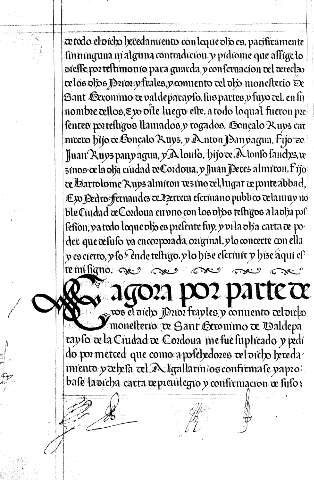 de todo el dicho heredamiento con lo que dho es, pacificamente
sin ninguna ni alguna contradicion, y pidiome que assi ge lo
diesse por testimonio para guarda y conseruacion del derecho
de los dhos Prior, y frales, y conuento del dho monesterio de
Sant Geronimo de valdeparayso, sus partes, y suyo del, en su
nombre dellos, E yo dile luego este, a todo lo qual fueron pre
sentes por testigos llamados, y rogados, Gonçalo Ruys car
nicero hijo de Gonçalo Ruys, y Anton Panyagua, fijo de
Juan Ruys panyagua, y Alonso, hijo de Alonso sanches, ve
zinos de la dha ciudad de Cordoua, y Juan Peres almiron, fijo
de Bartolome Ruys almiron vezino del lugar de ponte abbad,
E yo Pedro Fernandes de Herrera escriuano publico de la muy no
ble Ciudad de Cordoua en vno con los dhos testigos a la dha pos
session, y a todo lo que dho es presente fuy, y vi la dha carta de po
der que de suso va encorporada, original, y lo concerte con ella
y es cierto, y so ende testigo, y lo hize escriuir y hize aqui es
te mi signo.
E agora por parte de
vos el dicho Prior frales, y conuento del dicho
monesterio de Sant Geronimo de Valdepa
rayso de la Ciudad de Cordoua me fue suplicado y pedi
do por merced que como a poshedores del dicho hereda
miento y dehesa del Algallarin os confirmase y apro
base la dicha carta de preuilegio y confirmacion de suso